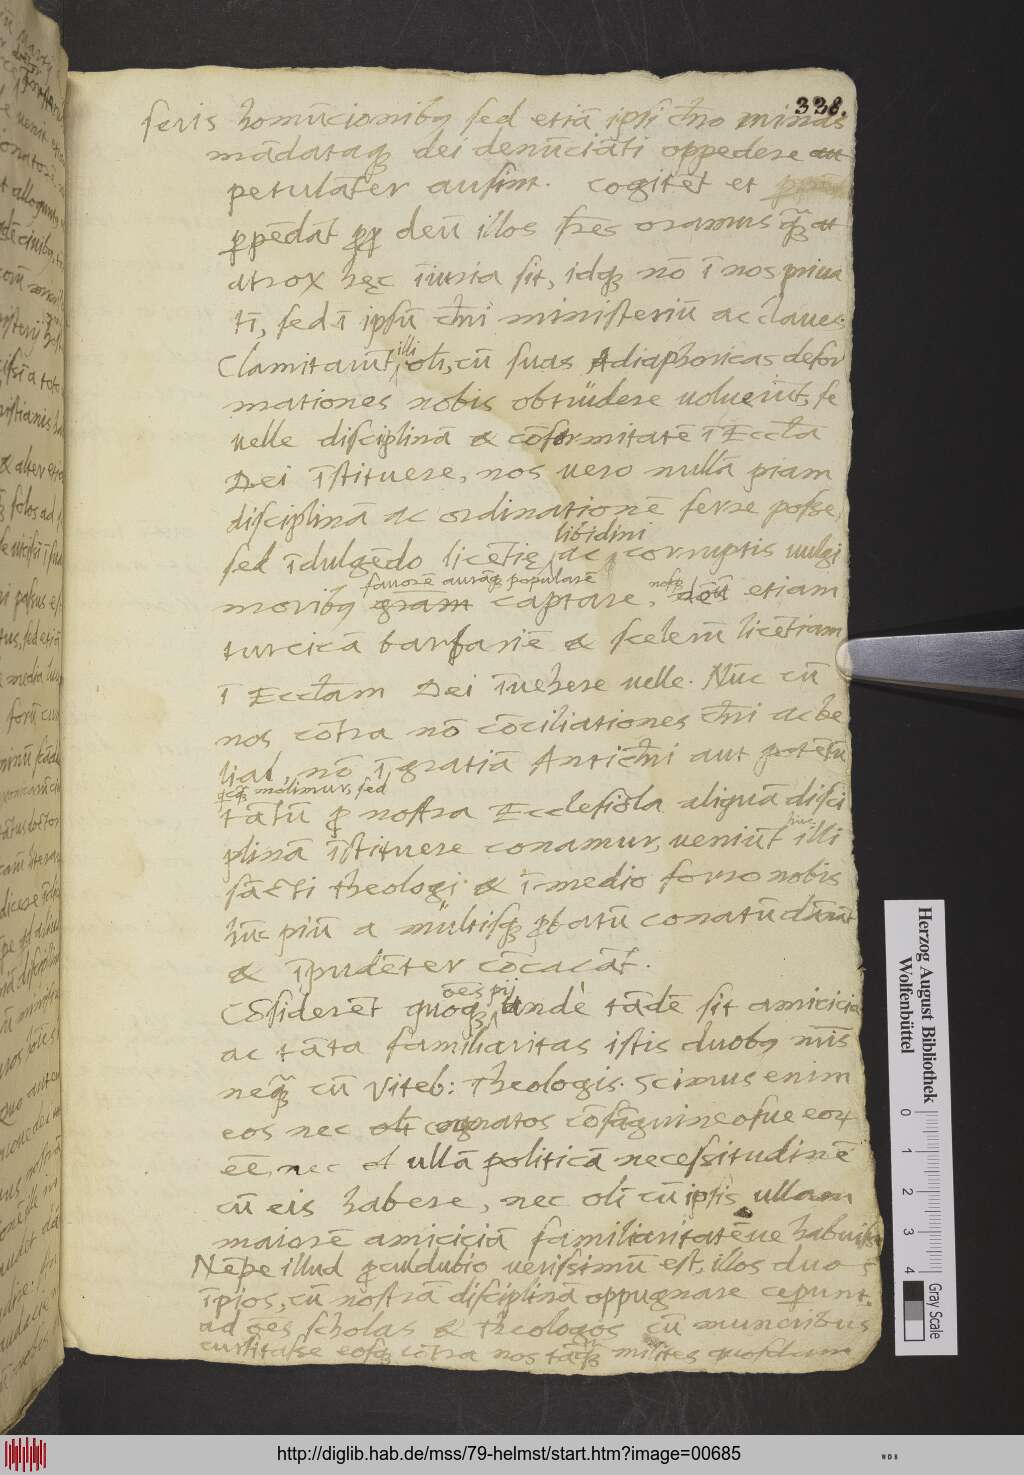 328.
seris homūcionibꝫ sed etiā ipsi chr̄o minas
mādataqꝫ dei denūciāti oppedere
petulāter ausint. Cogitēt et
ꝑpēdāt deū illos fr̄es oramus
atrox hęc īiuria sit, idqꝫ nō ī nos priua
tī, sed ī ipsū chr̄i ministeriū ac claues
Clamitarūt illi oli, cū suas Adiaphoricas defor
mationes nobis obtrüdere uoluerūt, se
uelle disciplinā & cōformitatē ī Eccl̄a
Dei īstituere, nos uero nullā piam
disciplinā ac ordinationē ferre posse,
libidini
sed īdulgēdo licētię, ac corruptis uulgi
fauorē aurāqꝫ popularē
moribꝫ gr̄am captare, etiam
turcicā barbariē & scelerū licētiam
ī Eccl̄am Dei īuehere uelle. Nūc cū
nos cōtra nō cōciliationes chr̄i ac be
lial, nō ī gratiā Antichr̄i aut potētū
molimur, sed
tātū ꝓ nostra Ecclesiola aliquā disci
plinā īstituere conamur, ueniūt illi
sācti theologi & ī medio foro nobis
hūc piū a mültisqꝫ ꝓbatū conatū dānāt
& īpudēter cōcacāt.
oēs pij
Cōsiderēt quoqꝫ unde tādē sit amicicia
ac tāta familiaritas istis duobꝫ
cū Viteb: Theologis. Scimus enim
eos nec cognatos cōsāguineosue
eē, nec ullā politicā necessitudinē
cū eis habere, nec oli cū ipsis ullam
maiorē amiciciā familiaritatēue habuisse
Nēpe illud ꝓculdubio uerissimū est, illos duos
īpios, cū nostrā disciplinā oppugnare ceperunt,
ad oēs scholas & theologos cū muneribus
cursitasse eosqꝫ cōtra nos milites quosdam
Herzog August Bibliothek
Wolfenbüttel
0 1 2 3 4
Gray Scale
http://diglib.hab.de/mss/79-helmst/start.htm?image=00685